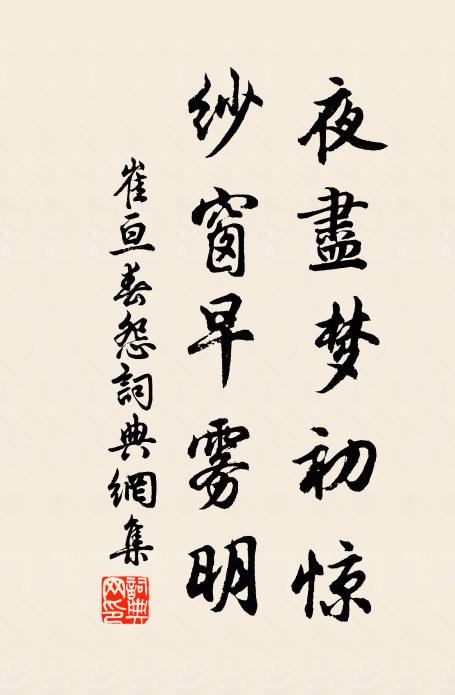 夜盡梦初惊
纱窗早雾明
崔亘春怨詞典網集
詞典網印